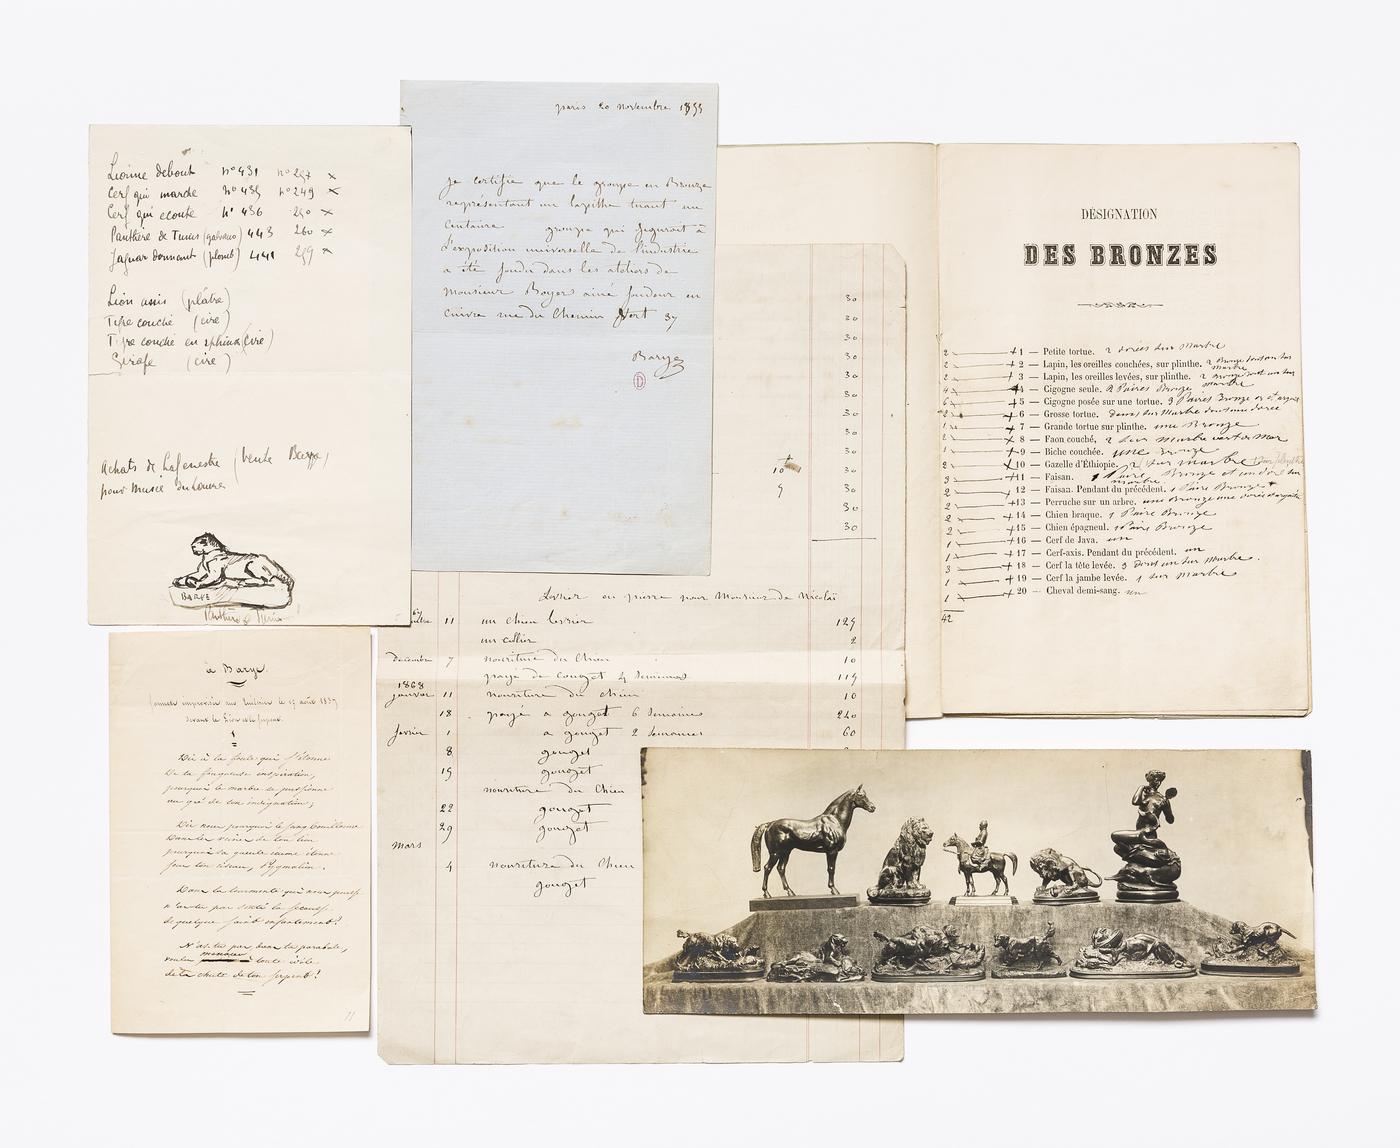 Lionne debout n° 431 n° 257 x
Cerf qui marche n° 435 n° 249 x
Cerf qui ecoute n° 436 250 x
Panthère de Tunis (galvano) 443 260 x
Jaguar dormant (plomb) 441 259 x
Lion assis (plâtre)
Tigre couché (cire)
Tigre couché en sphinx (cire)
Girafe (cire)
Achats de Lafenestre (vente Barye)
pour Musée du Louvre
BARYE
Panthère de Tunis
paris 20 novembre 1855
je certifie que le groupe en Bronze
représentant un lapithe tuant un
Centaure groupe qui figurait à
l'exposition universelle de l'industrie
a été fondu dans les ateliers de
Monsieur Boyer ainé fondeur en
cuivre rue du Chemin Vert 37
Barye
D
30
30
30
30
30
30
30
30
30
10 30
9 30
30
30
Levrier en pierre pour Monsieur de Nicolaï
11 un chien levrier 125
un collier 2
décembre 7 nouriture du Chien 10
payé de gouget 4 Semaines 115
1868
janvier 11 nouriture du chien 10
18 payé a gouget 6 Semaines 240
fevrier 1 a gouget 2 Semaines 60
8 gouget
15 gouget
nouriture du Chien
22 gouget
29 gouget
mars
4 nouriture du Chien
gouget
DÉSIGNATION
DES BRONZES
2 +1 — Petite tortue. 2 dorées sur Marbre
2 +2 — Lapin, les oreilles couchées, sur plinthe. 2 Bronze
marbre
2 +3 — Lapin, les oreilles levées, sur plinthe. 2 Bronze
marbre
4 +4 — Cigogne seule. 2 Paires Bronze
6 +5 — Cigogne posée sur une tortue. 3 Paires Bronze
2 +6 — Grosse tortue. deux sur Marbre dont une dorée
1 +7 — Grande tortue sur plinthe. une Bronze
2 +8 — Faon couché. 2 sur marbre vert de Mer
1 +9 — Biche couchée. une Bronze
2 +10 — Gazelle d'Éthiopie. 2 sur marbre
3 +11 — Faisan. 1 Paire Bronze et un doré sur
marbre.
2 12 — Faisan. Pendant du précédent. 1 Paire Bronze
2 +13 — Perruche sur un arbre. une Bronze une dorée
2 +14 — Chien braque. 1 Paire Bronze
2 +15 — Chien épagneul. 1 Paire Bronze
1 +16 — Cerf de Java. un
1 +17 — Cerf-axis. Pendant du précédent. un
3 +18 — Cerf la tête levée. 3 dont un sur Marbre.
1 +19 — Cerf la jambe levée. 1 sur Marbre
1 +20 — Cheval demi-sang. un
42
à Barye.
devant le Lion et le Serpent.
1
Dis à la foule qui s'étonne
De ta fougueuse inspiration,
pourquoi le marbre se passionne
au gré de ton indignation;
Dis nous pourquoi le sang bouillonne
Dans les veines de ton lion
pourquoi sa gueule
sous ton ciseau, Pygmalion.
Dans la tourmente qui nous pousse
n'as-tu pas senti la secousse
de quelque saint enfantement?
N'as-tu pas dans ta parabole,
voulu menacer toute idole
de la chute de ton serpent!
11